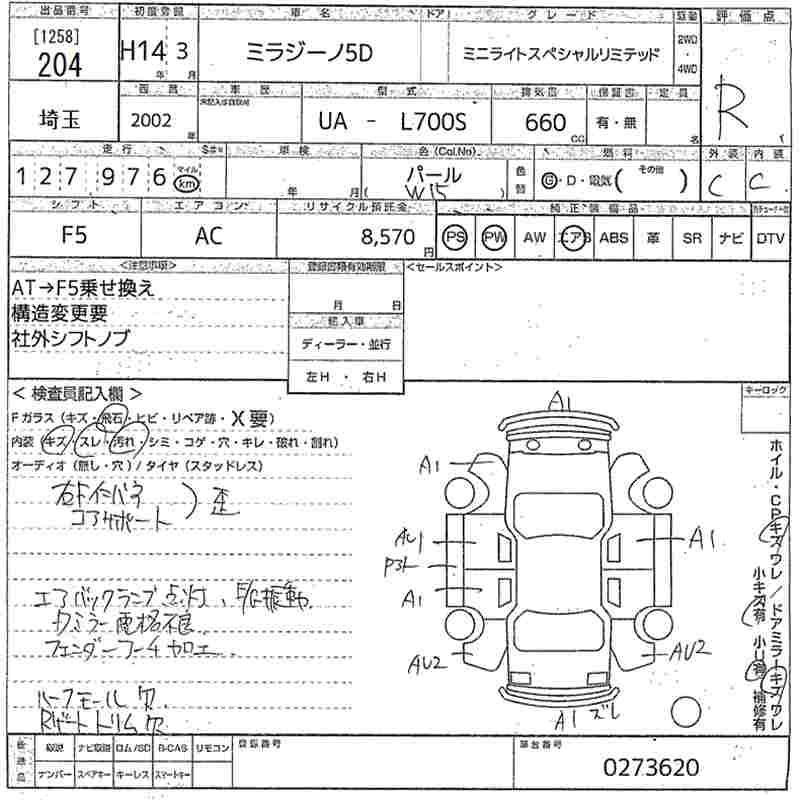 出品番号 初度登録 車名 ドア グレード 駆動 評価点
[1258]
204
H14 年 3 月
ミラジーノ5D
ミニライトスペシャルリミテッド
2WD
・
4WD
R
西暦 車歴 型式 排気量 保証書 定員
埼玉
2002 年
UA - L700S
660 CC
有・無
名
走行 車検 色(Col.No) 燃料 外装 内装
127976
マイル
km
年 月
パール
( W15 )
色替
G・D・電気( その他 )
C C
シフト エアコン リサイクル預託金 純正装備品
F5 AC 8,570 円
PS PW AW エアB ABS 革 SR ナビ DTV
<注意事項> 登録書類有効期限 <セールスポイント>
AT→F5乗せ換え
構造変更要
社外シフトノブ
月 日
輸入車
ディーラー・並行
左H ・ 右H
< 検査員記入欄 >
キーロック
Fガラス(キズ・飛石・ヒビ・リペア跡・X要)
内装(キズ・スレ・汚れ・シミ・コゲ・穴・キレ・破れ・割れ)
オーディオ(無し・穴)/タイヤ(スタッドレス)
右Fインパネ
コアサポート
) 歪
エアバックランプ点灯、E/G振動
ミラー電格不良
フェンダーアーチ加工
ルーフモール欠
トリム欠
A1
A1
AU1
P3ト
A1
A1
AU2
AU2
A1 ズレ
ホイル・CPキズワレ/ドアミラーキズワレ
小キズ有 小U有 補修有
後送品
取説 ナビ取説 ロム/SD B-CAS リモコン
ナンバー スペアキー キーレス スマートキー
登録番号
車台番号
0273620